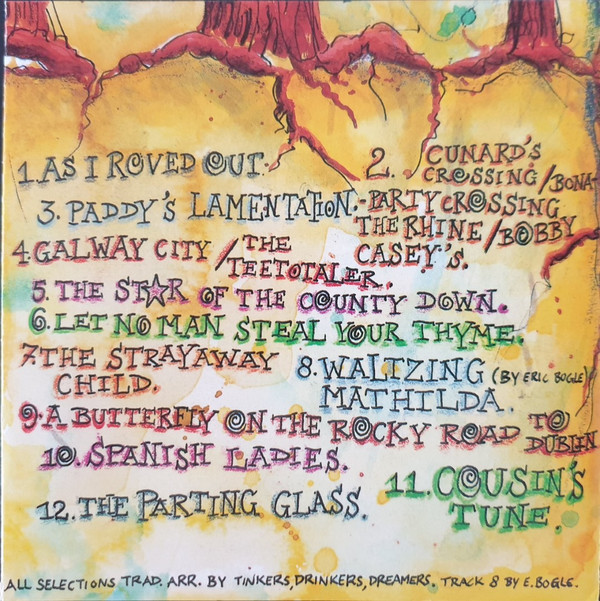 1. AS I ROVED OUT.
2. CUNARD'S
CROSSING/BONA-
-PARTY CROSSING
THE RHINE/BOBBY
CASEY'S.
3. PADDY'S LAMENTATION.
4. GALWAY CITY / THE
TEETOTALER.
5. THE STAR OF THE COUNTY DOWN.
6. LET NO MAN STEAL YOUR THYME.
7. THE STRAYAWAY
CHILD.
8. WALTZING (BY ERIC BOGLE)
MATHILDA.
9. A BUTTERFLY ON THE ROCKY ROAD TO
DUBLIN
10. SPANISH LADIES.
11. COUSIN'S
TUNE.
12. THE PARTING GLASS.
ALL SELECTIONS TRAD. ARR. BY TINKERS, DRINKERS, DREAMERS. TRACK 8 BY E. BOGLE.